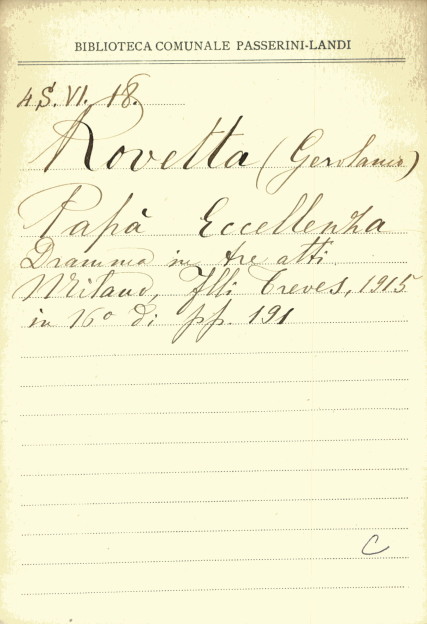 BIBLIOTECA COMUNALE PASSERINI-LANDI
4S. VI. 18.
Rovetta (Gerolamo)
Papà Eccellenza
Dramma in tre atti.
Milano, Flli Treves, 1915
in 16º di pp. 191
C